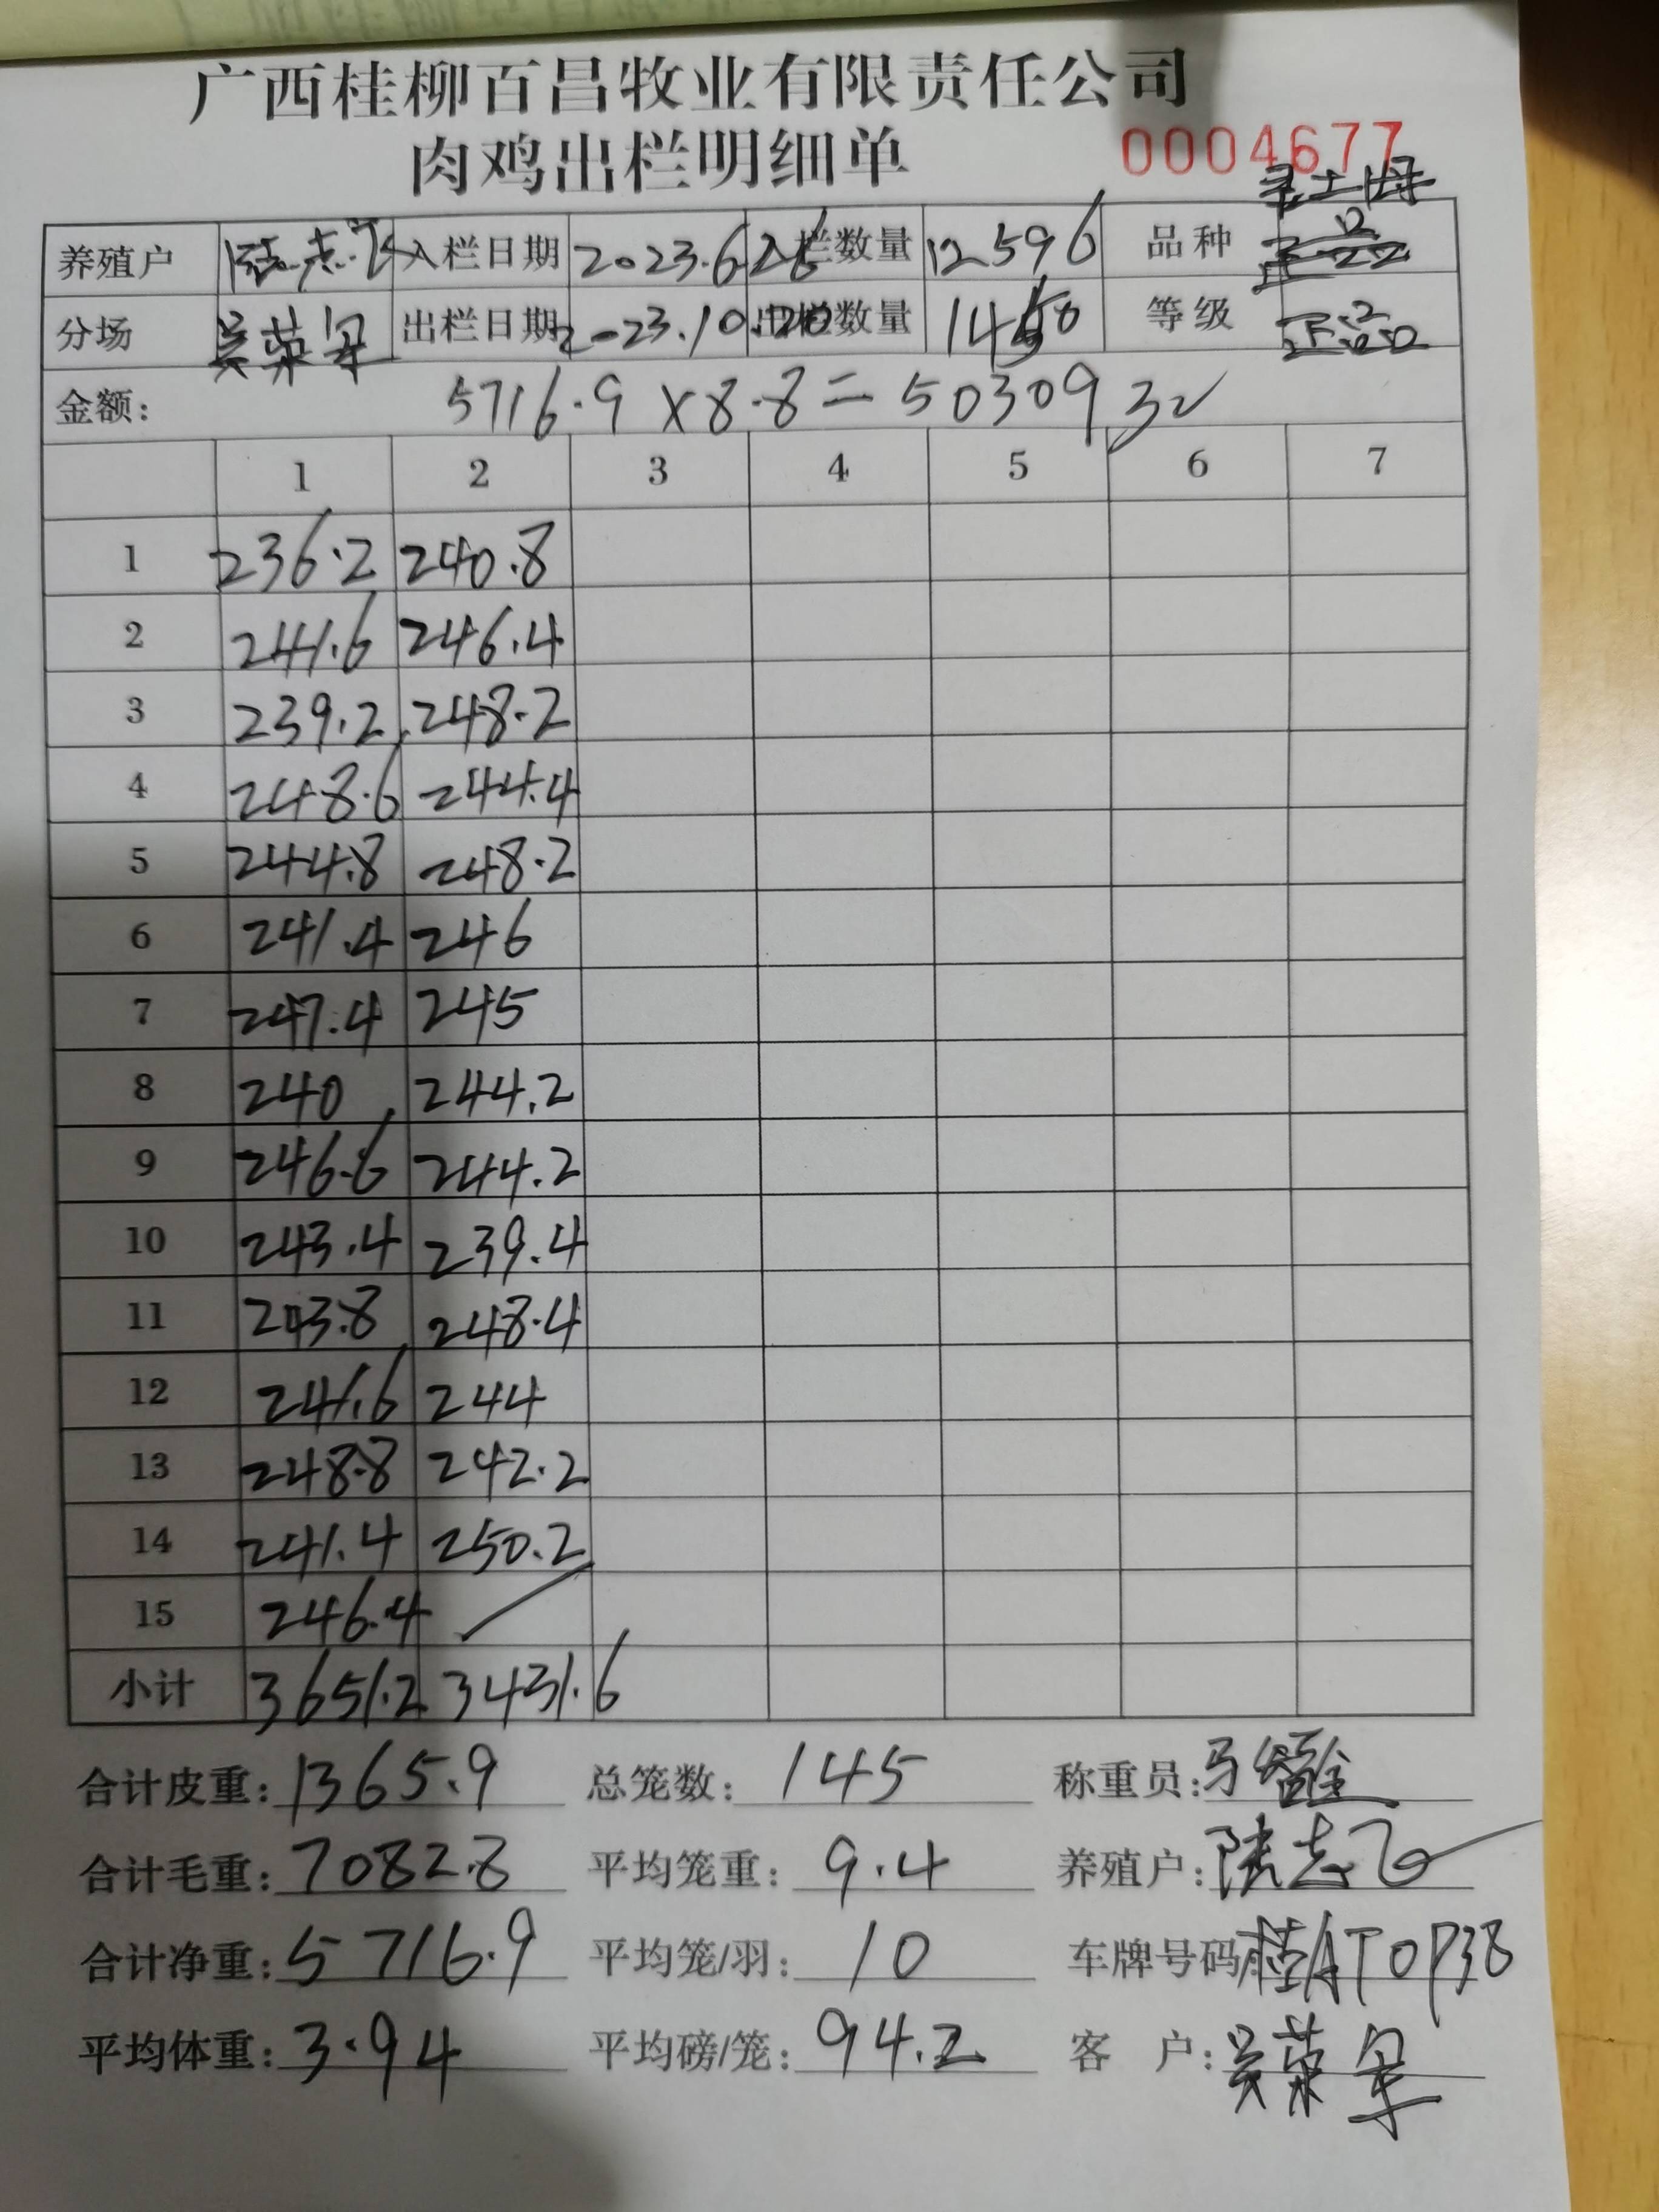 广西桂柳百昌牧业有限责任公司
肉鸡出栏明细单 0004677
养殖户 陆志飞 入栏日期 2023.6.26 入栏数量 12596 品种
分场 吴荣军 出栏日期 2023.10.20 出栏数量 1450 等级 正品
金额: 5716.9 × 8.8 = 50309 32
1 2 3 4 5 6 7
1 236.2 240.8
2 241.6 246.4
3 239.2 248.2
4 248.6 244.4
5 244.8 248.2
6 241.4 246
7 247.4 245
8 240 244.2
9 246.6 244.2
10 243.4 239.4
11 243.8 248.4
12 241.6 244
13 248.8 242.2
14 241.4 250.2
15 246.4
小计 3651.2 3431.6
合计皮重: 1365.9 总笼数: 145 称重员: 马
合计毛重: 7082.8 平均笼重: 9.4 养殖户: 陆志飞
合计净重: 5716.9 平均笼/羽: 10 车牌号码: 桂AT0P38
平均体重: 3.94 平均磅/笼: 94.2 客 户: 吴荣军